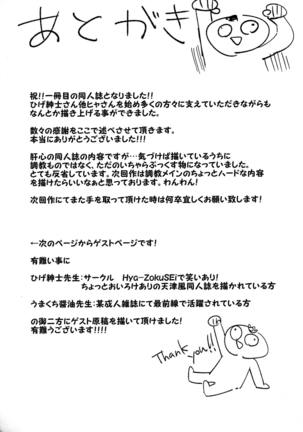 あとがき
祝!!一冊目の同人誌となりました!!
ひげ紳士さん他ヒャさんを始め多くの方々に支えていただきながらも
なんとか描き上げる事ができました。
数々の感謝をここで述べさせて頂きます。
本当にありがとうございました!!!
肝心の同人誌の内容ですが…気づけば描いているうちに
調教ものではなく、ただのいちゃらぶっくす物になっていました。
とても反省しています。次回作は調教メインのちょっとハードな内容
を描けたらいいなぁと思っております。わんわん!
次回作にてまた手を取って頂けた時は何卒宜しくお願い致します!
←次のページからゲストページです!
有難い事に
ひげ紳士先生:サークル Hyg-ZokuSEiで笑いあり!
ちょっとおいろけありの天津風同人誌を描かれている方
うまくち醤油先生:某成人雑誌にて最前線で活躍されている方
の御二方にゲスト原稿を描いて頂けました!
有難うございます!!!!
Thank you!!